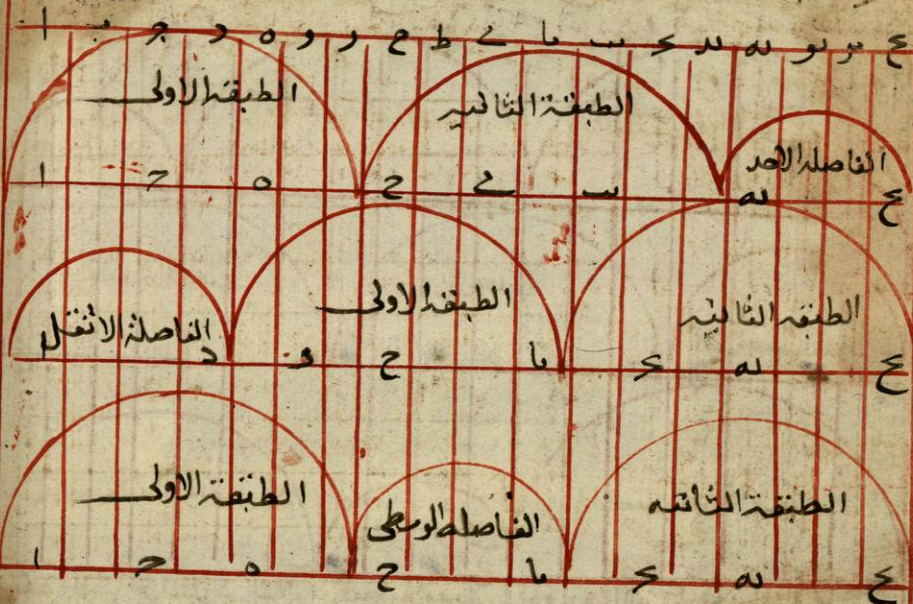 ا ب ج د ه و ز ح ط ي يا يب يج يد يه يو يز يح
الطبقة الاولى
الطبقة الثانية
الفاصلة الاحد
ا ج ه ح ي يب يه يح
الفاصلة الاثقل
الطبقة الاولى
الطبقة الثانية
د و ح يا يج يه يح
الطبقة الاولى
الفاصلة الوسطى
الطبقة الثانية
ا ج ه ح يا يج يه يح